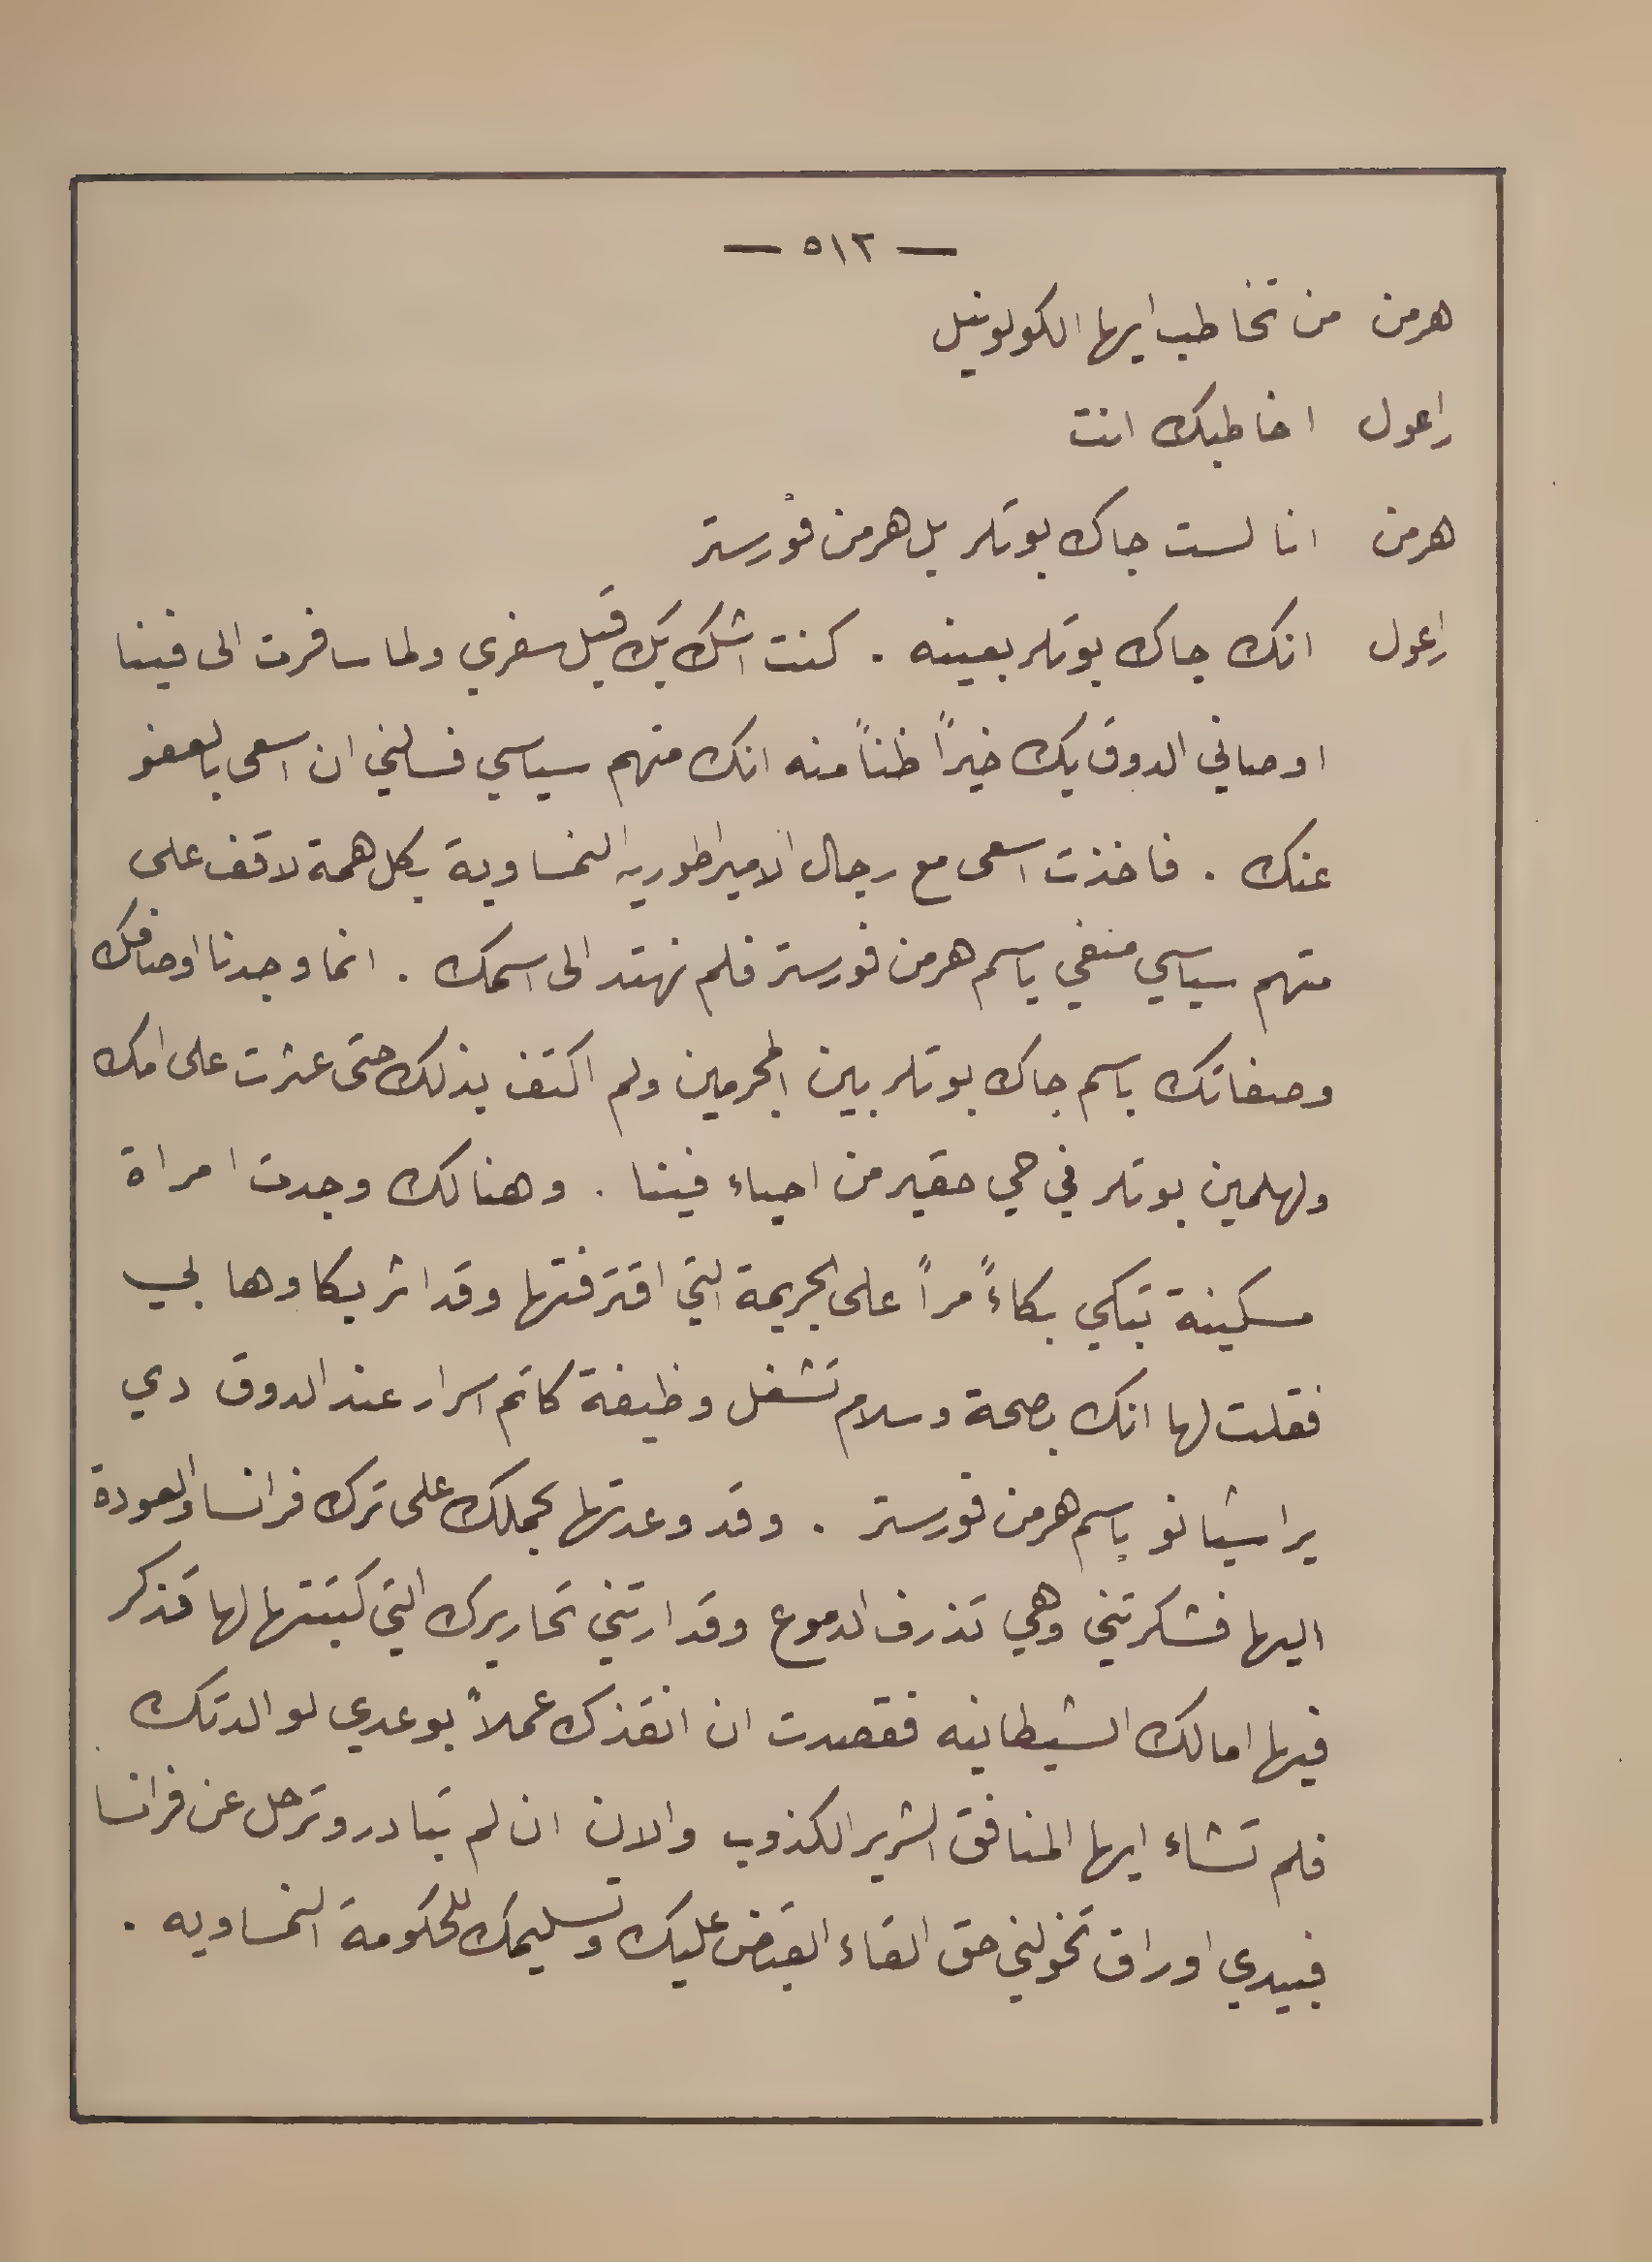 — ٥١٢ —
هرمن من تخاطب ايها الكولونيل
راعول اخاطبك انت
هرمن انا لست جاك بوتلر بل هرمن فورستر
راعول انك جاك بوتلر بعينه . كنت اشك بك قبل سفري ولما سافرت الى فيينا
اوصاني الدوق بك خيراً ظناً منه انك متهم سياسي فسالني ان اسعى بالعفو
عنك . فاخذت اسعى مع رجال الامبراطوريه النمساوية بكل همة لاقف على
متهم سياسي منفي باسم هرمن فورستر فلم نهتد الى اسمك . انما وجدنا اوصافك
وصفاتك باسم جاك بوتلر بين المجرمين ولم اكتف بذلك حتى عثرت على امك
ولهلمين بوتلر في حي حقير من احياء فيينا . وهنالك وجدت امراة
مسكينة تبكي بكاءً مراً على الجريمة التي اقترفتها وقد اثر بكاوها بي
فقلت لها انك بصحة وسلام تشغل وظيفة كاتم اسرار عند الدوق دي
براشيانو باسم هرمن فورستر . وقد وعدتها بحملك على ترك فرانسا والعودة
اليها فشكرتني وهي تذرف الدموع وقد ارتني تحاريرك التي كتبتها لها تذكر
فيها امالك الشيطانيه فقصدت ان انقذك عملاً بوعدي لوالدتك
فلم تشاء ايها المنافق الشرير الكذوب والان ان لم تبادر وترحل عن فرانسا
فبيدي اوراق تخولني حق القاء القبض عليك وتسليمك للحكومة النمساويه .